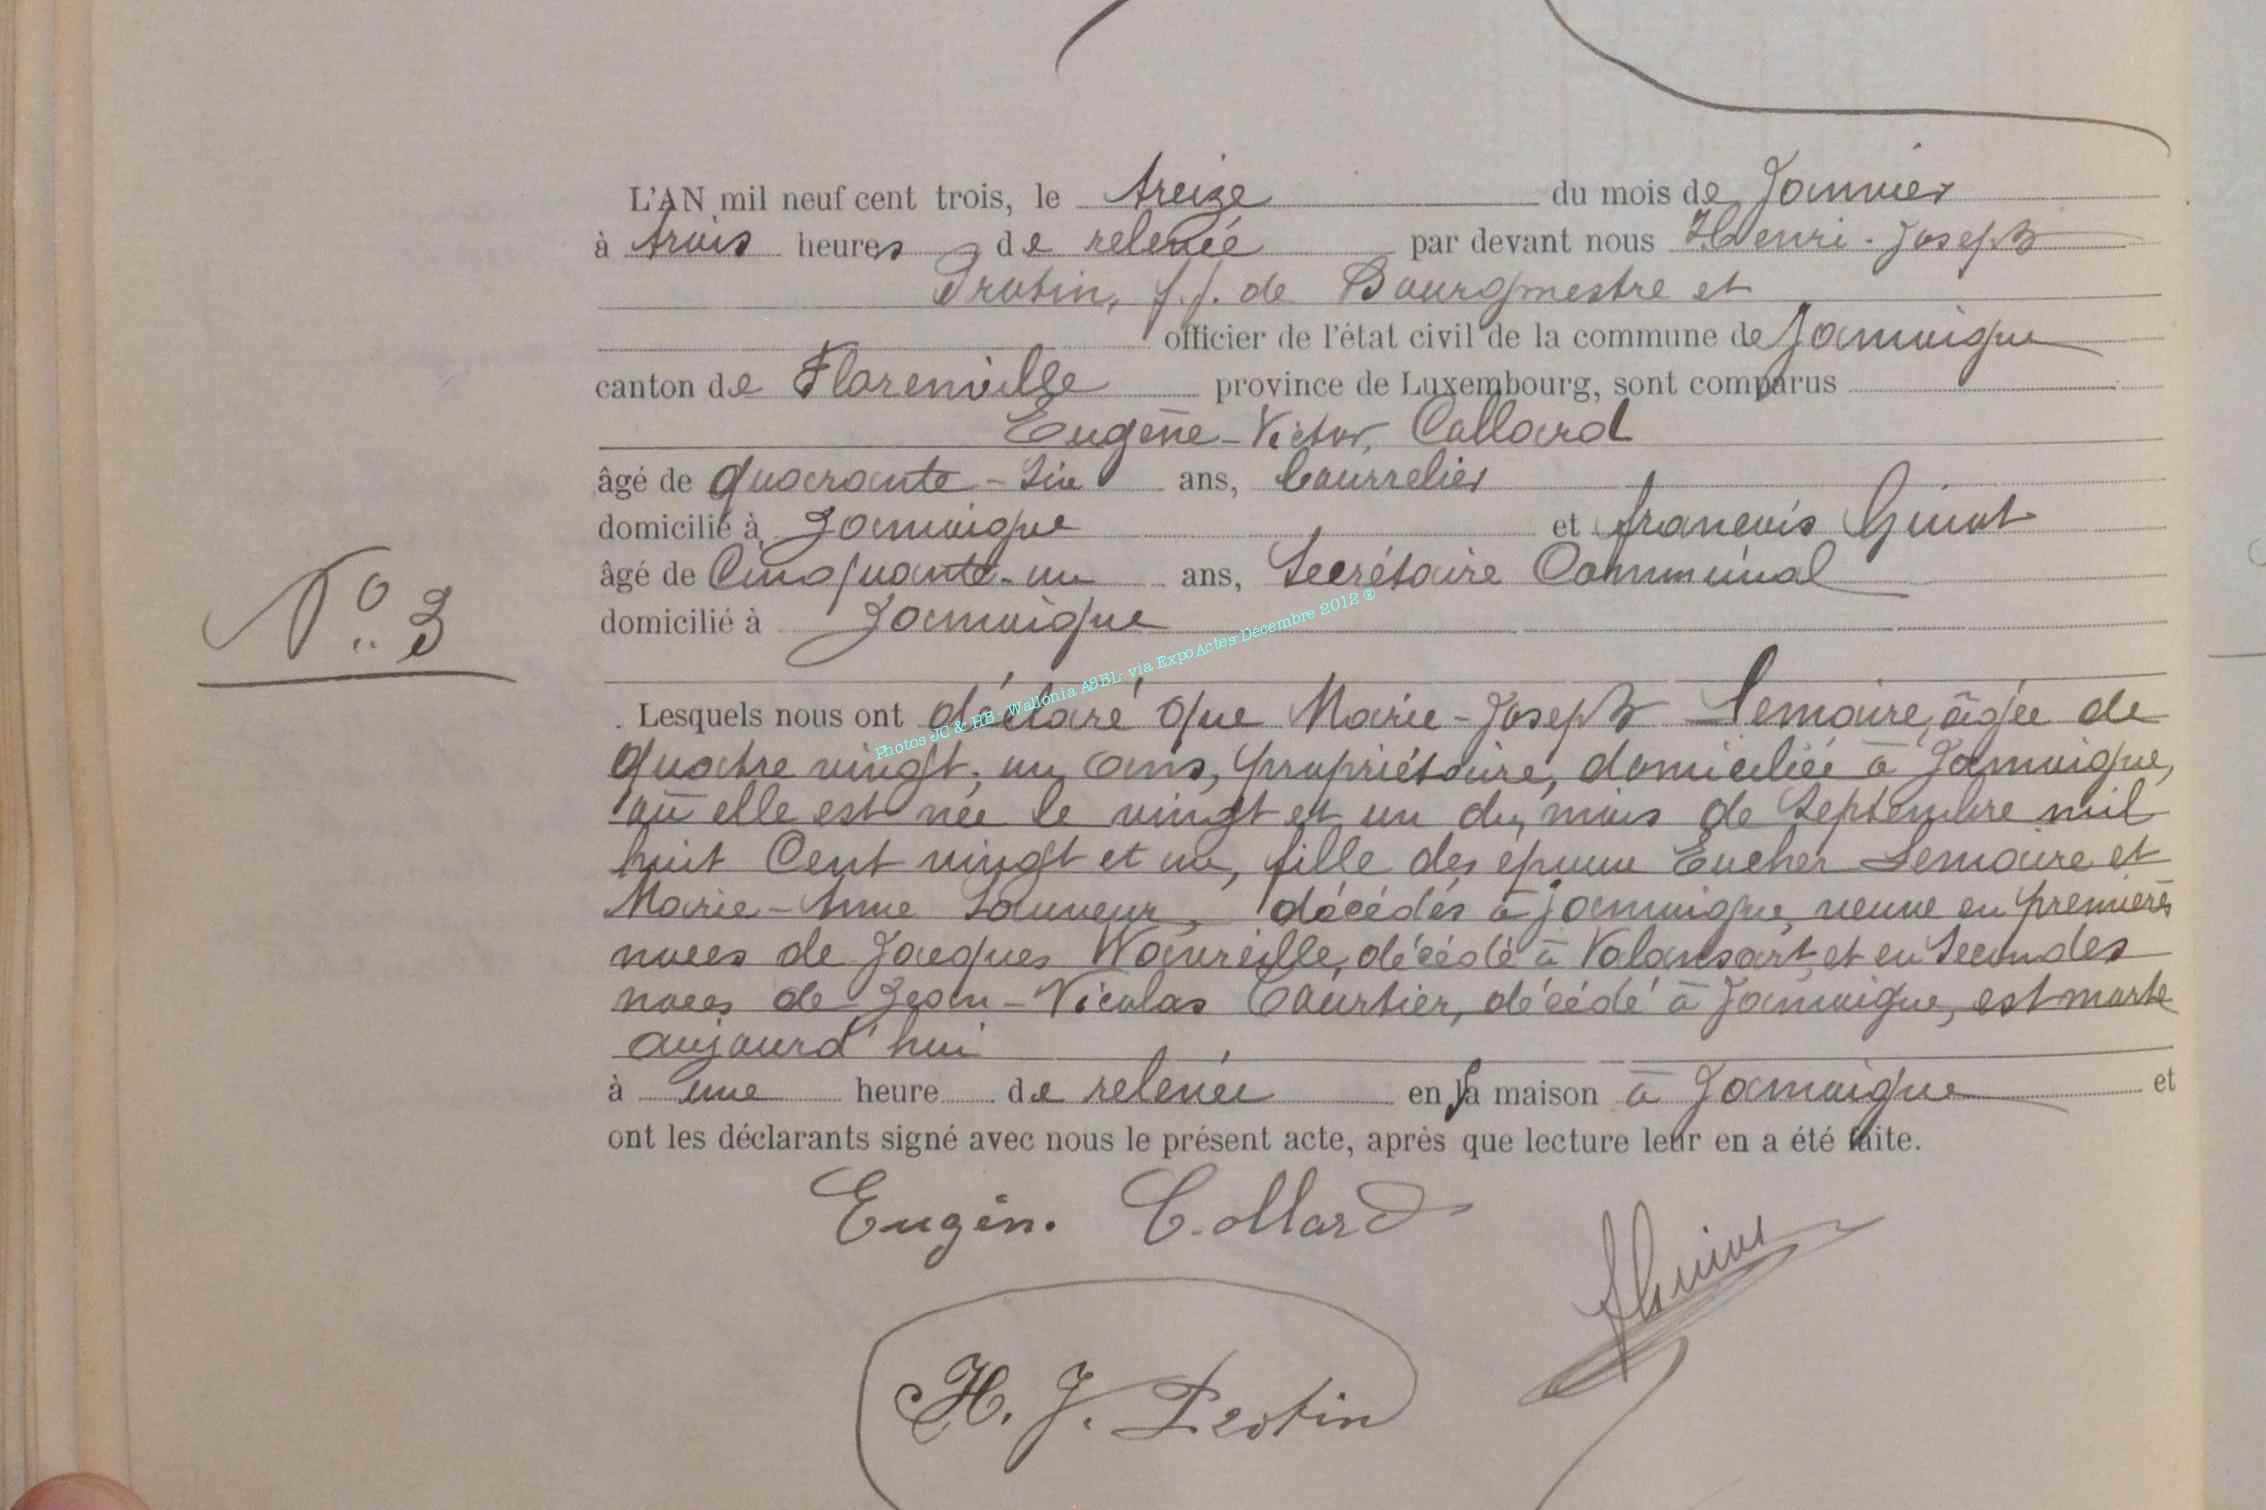 L'AN mil neuf cent trois, le treize du mois de Janvier
à trois heures de relevée par devant nous Henri-Joseph
Protin, f.f. de Bourgmestre et
officier de l'état civil de la commune de Jamoigne
canton de Florenville province de Luxembourg, sont comparus
Eugène-Victor Collard
âgé de quarante-six ans, bourrelier
domicilié à Jamoigne et françois Guiot
âgé de Cinquante-un ans, Secrétaire Communal
domicilié à Jamoigne
N° 3
Lesquels nous ont déclaré que Marie-Joseph Lemaire, âgée de
quatre vingt-un ans, propriétaire, domiciliée à Jamoigne,
où elle est née le vingt et un du mois de Septembre mil
huit Cent vingt et un, fille des époux Eucher Lemaire et
Marie-Anne Sauveur, décédés à Jamoigne, veuve en premières
noces de Jacques Wavreille, décédé à Valansart, et en Secondes
noces de Jean-Nicolas Courtier, décédé à Jamoigne, est morte
aujourd'hui
à une heure de relevée en sa maison à Jamoigne et
ont les déclarants signé avec nous le présent acte, après que lecture leur en a été faite.
Photos JC & HB - Wallonia ASBL via ExpoActes Décembre 2012 ®
Eugèn. Collard
H. J. Protin